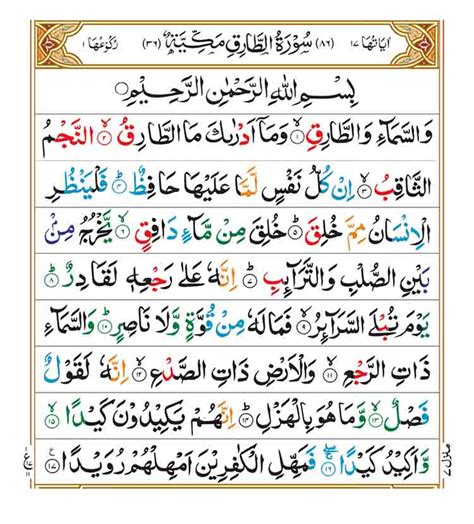 اٰيَاتُهَا ١٧ (٨٦) سُوْرَةُ الطَّارِقِ مَكِّيَّةٌ (٣٦) رُكُوْعُهَا ١
بِسْمِ اللهِ الرَّحْمٰنِ الرَّحِيْمِ
وَالسَّمَآءِ وَالطَّارِقِ ۙ‏﴿۱﴾ وَمَاۤ اَدْرٰىكَ مَا الطَّارِقُ ۙ‏﴿۲﴾ النَّجْمُ
الثَّاقِبُ ۙ‏﴿۳﴾ اِنْ كُلُّ نَفْسٍ لَّمَّا عَلَيْهَا حَافِظٌ ؕ‏﴿۴﴾ فَلْيَنْظُرِ
الْاِنْسَانُ مِمَّ خُلِقَ ؕ‏﴿۵﴾ خُلِقَ مِنْ مَّآءٍ دَافِقٍ ۙ‏﴿۶﴾ يَّخْرُجُ مِنْۢ
بَيْنِ الصُّلْبِ وَالتَّرَآئِبِ ؕ‏﴿۷﴾ اِنَّهٗ عَلٰى رَجْعِهٖ لَقَادِرٌ ؕ‏﴿۸﴾
يَوْمَ تُبْلَى السَّرَآئِرُ ۙ‏﴿۹﴾ فَمَا لَهٗ مِنْ قُوَّةٍ وَّلَا نَاصِرٍ ؕ‏﴿۱۰﴾ وَالسَّمَآءِ
ذَاتِ الرَّجْعِ ۙ‏﴿۱۱﴾ وَالْاَرْضِ ذَاتِ الصَّدْعِ ۙ‏﴿۱۲﴾ اِنَّهٗ لَقَوْلٌ
فَصْلٌ ۙ‏﴿۱۳﴾ وَّمَا هُوَ بِالْهَزْلِ ؕ‏﴿۱۴﴾ اِنَّهُمْ يَكِيْدُوْنَ كَيْدًا ۙ‏﴿۱۵﴾
وَّاَكِيْدُ كَيْدًا ۚۖ‏﴿۱۶﴾ فَمَهِّلِ الْكٰفِرِيْنَ اَمْهِلْهُمْ رُوَيْدًا ‏﴿۱۷﴾
منزل ٧